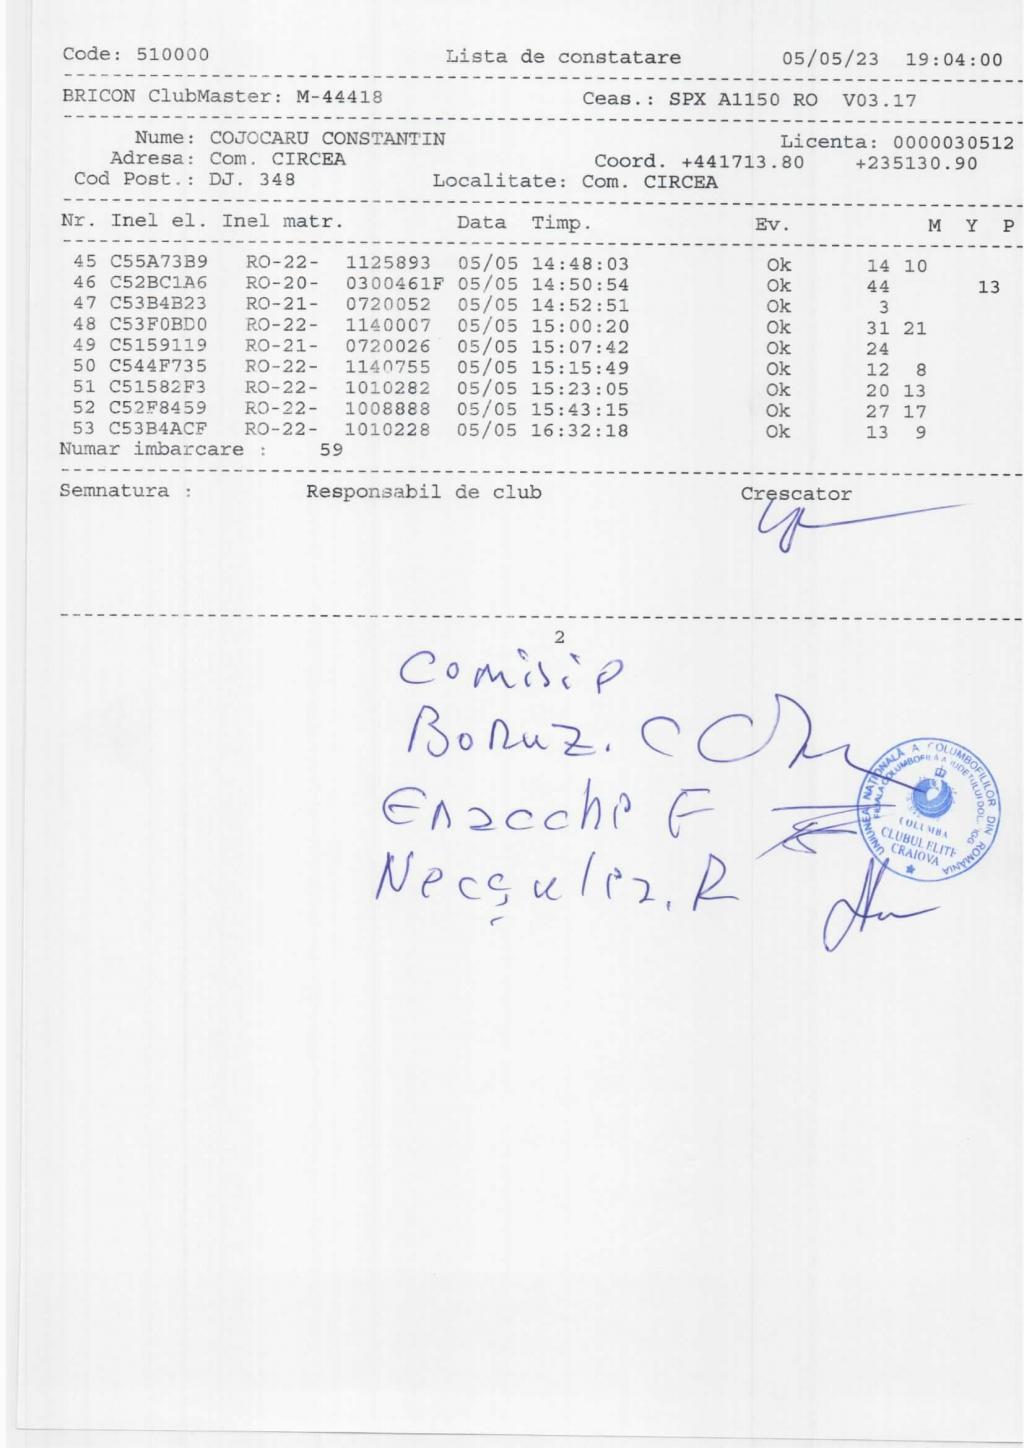 Code: 510000 Lista de constatare 05/05/23 19:04:00
BRICON ClubMaster: M-44418 Ceas.: SPX A1150 RO V03.17
Nume: COJOCARU CONSTANTIN Licenta: 0000030512
Adresa: Com. CIRCEA Coord. +441713.80 +235130.90
Cod Post.: DJ. 348 Localitate: Com. CIRCEA
Nr. Inel el. Inel matr. Data Timp. Ev. M Y P
45 C55A73B9 RO-22- 1125893 05/05 14:48:03 Ok 14 10
46 C52BC1A6 RO-20- 0300461F 05/05 14:50:54 Ok 44 13
47 C53B4B23 RO-21- 0720052 05/05 14:52:51 Ok 3
48 C53F0BD0 RO-22- 1140007 05/05 15:00:20 Ok 31 21
49 C5159119 RO-21- 0720026 05/05 15:07:42 Ok 24
50 C544F735 RO-22- 1140755 05/05 15:15:49 Ok 12 8
51 C51582F3 RO-22- 1010282 05/05 15:23:05 Ok 20 13
52 C52F8459 RO-22- 1008888 05/05 15:43:15 Ok 27 17
53 C53B4ACF RO-22- 1010228 05/05 16:32:18 Ok 13 9
Numar imbarcare : 59
Semnatura : Responsabil de club Crescator
2
Comisie
Boruz. C
Enacche F
Necșulea. R
UNIUNEA NAȚIONALĂ A COLUMBOFILILOR DIN ROMÂNIA
FILIALA COLUMBOFILĂ A JUDEȚULUI DOLJ
COLUMBA
CLUBUL ELITE
CRAIOVA